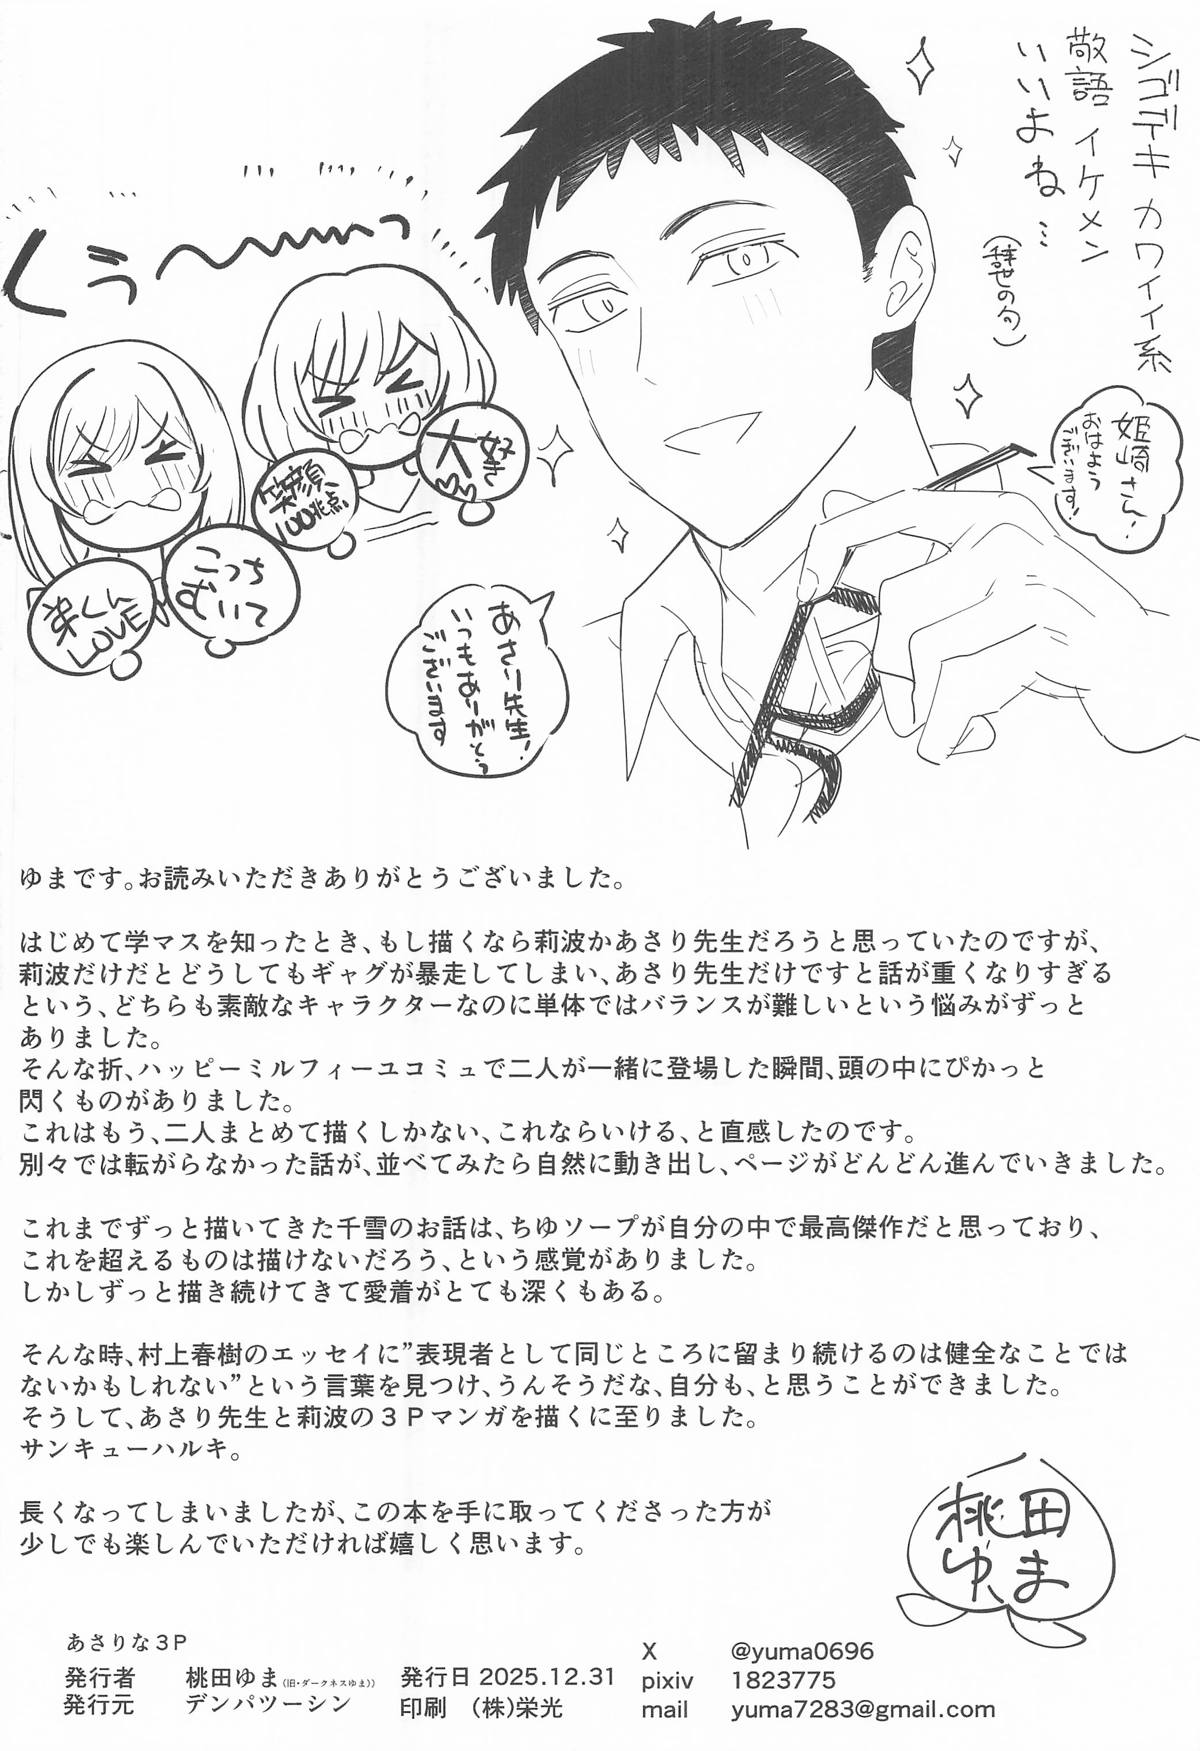 シゴデキカワイイ系
敬語イケメン
いいよね…
(辞世の句)
くぅ〜っ
姫崎さん!
おはよう
ございます!
大好き
笑顔
100兆点
こっち
むいて
弟くん
LOVE
あさり先生!
いつもありがとう
ございます
ゆまです。お読みいただきありがとうございました。
はじめて学マスを知ったとき、もし描くなら莉波かあさり先生だろうと思っていたのですが、
莉波だけだとどうしてもギャグが暴走してしまい、あさり先生だけですと話が重くなりすぎる
という、どちらも素敵なキャラクターなのに単体ではバランスが難しいという悩みがずっと
ありました。
そんな折、ハッピーミルフィーユコミュで二人が一緒に登場した瞬間、頭の中にぴかっと
閃くものがありました。
これはもう、二人まとめて描くしかない、これならいける、と直感したのです。
別々では転がらなかった話が、並べてみたら自然に動き出し、ページがどんどん進んでいきました。
これまでずっと描いてきた千雪のお話は、ちゆソープが自分の中で最高傑作だと思っており、
これを超えるものは描けないだろう、という感覚がありました。
しかしずっと描き続けてきて愛着がとても深くもある。
そんな時、村上春樹のエッセイに”表現者として同じところに留まり続けるのは健全なことでは
ないかもしれない”という言葉を見つけ、うんそうだな、自分も、と思うことができました。
そうして、あさり先生と莉波の３Ｐマンガを描くに至りました。
サンキューハルキ。
長くなってしまいましたが、この本を手に取ってくださった方が
少しでも楽しんでいただければ嬉しく思います。
桃田
ゆま
あさりな３Ｐ
発行者 桃田ゆま(旧・ダークネスゆま))
発行元 デンパツーシン
発行日 2025.12.31
印刷 (株)栄光
X @yuma0696
pixiv 1823775
mail yuma7283@gmail.com